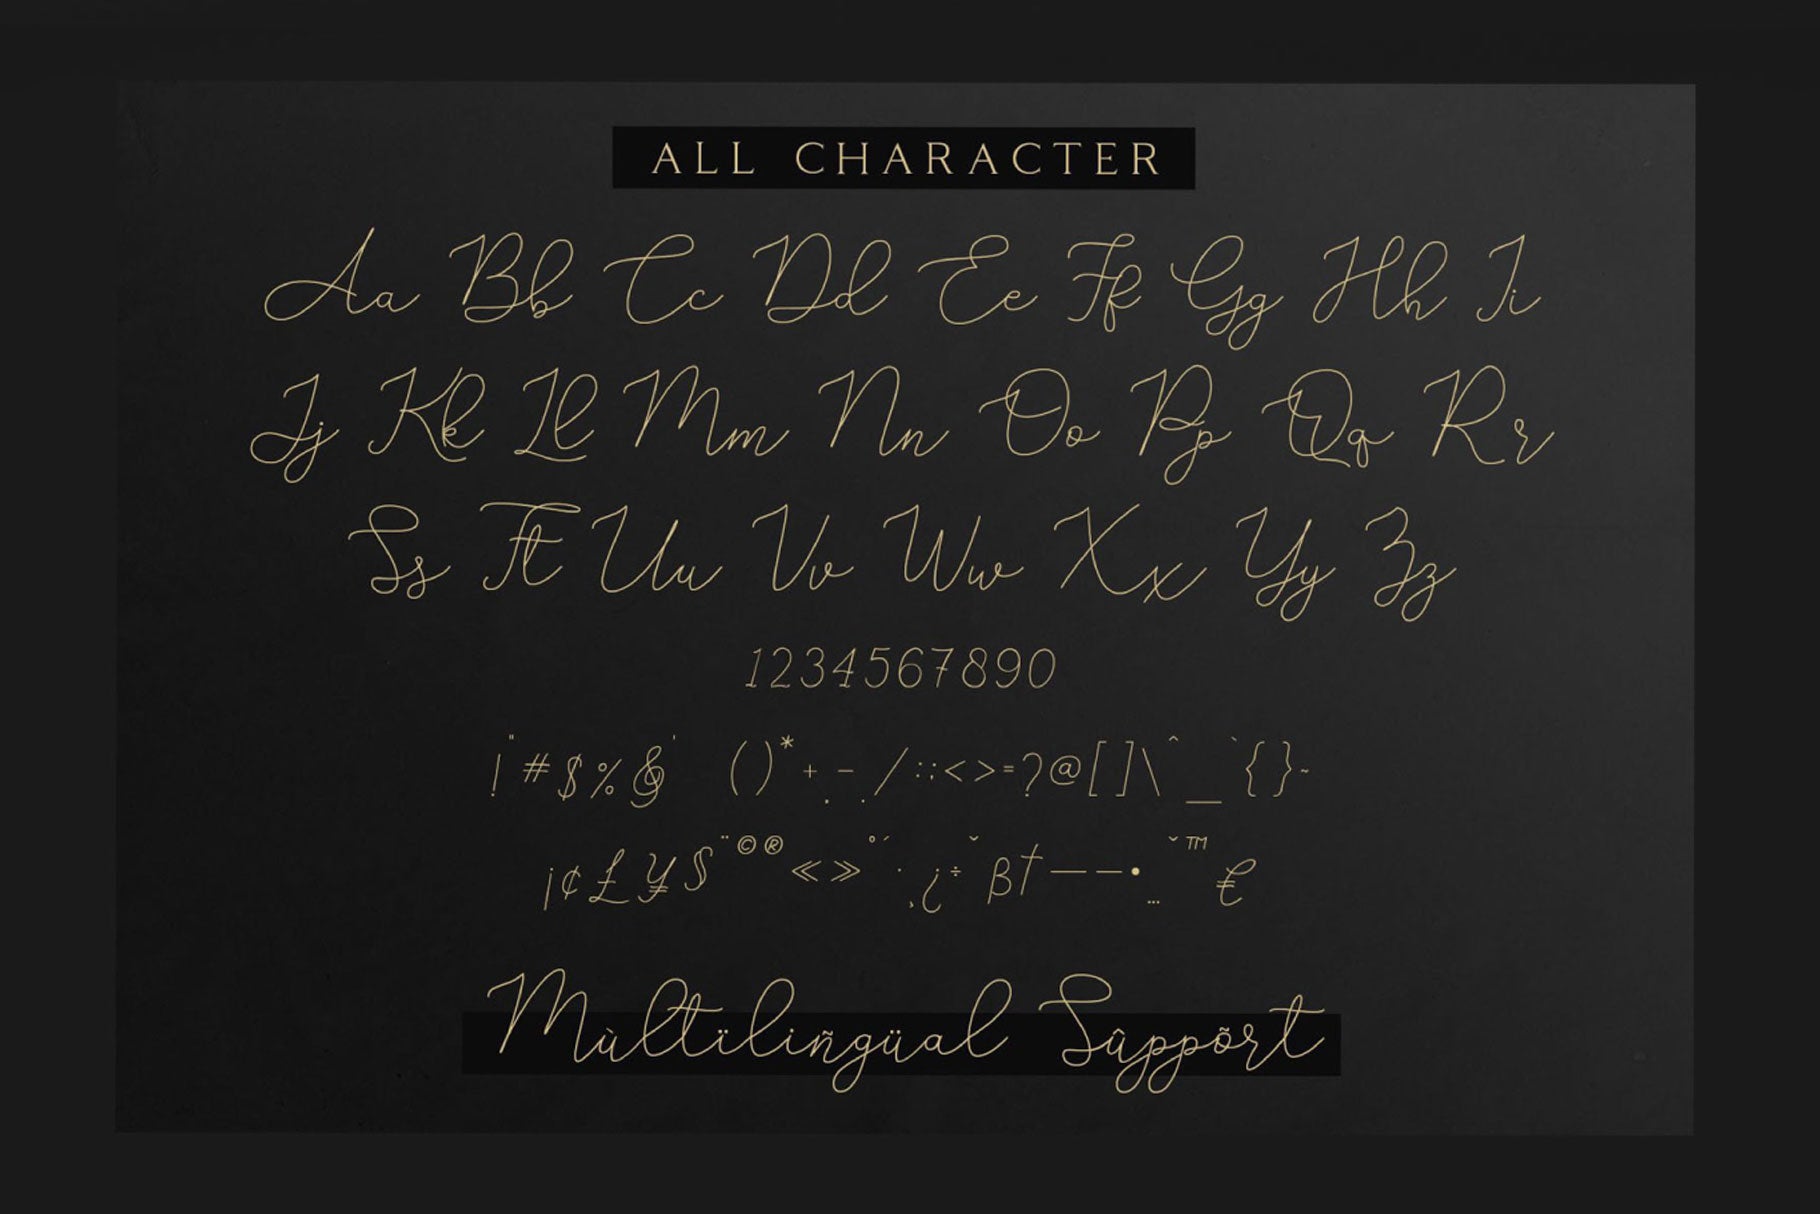 ALL CHARACTER
Aa Bb Cc Dd Ee Ff Gg Hh Ii
Jj Kk Ll Mm Nn Oo Pp Qq Rr
Ss Tt Uu Vv Ww Xx Yy Zz
1234567890
!"#$%&' ()*+,-./:;<>=?@[]\^_`{}~
¡¢£¥§¨©®«»°´·¸¿÷ˇβ†—–•…˘™€
Mùltïliñgüal Sûppõrt